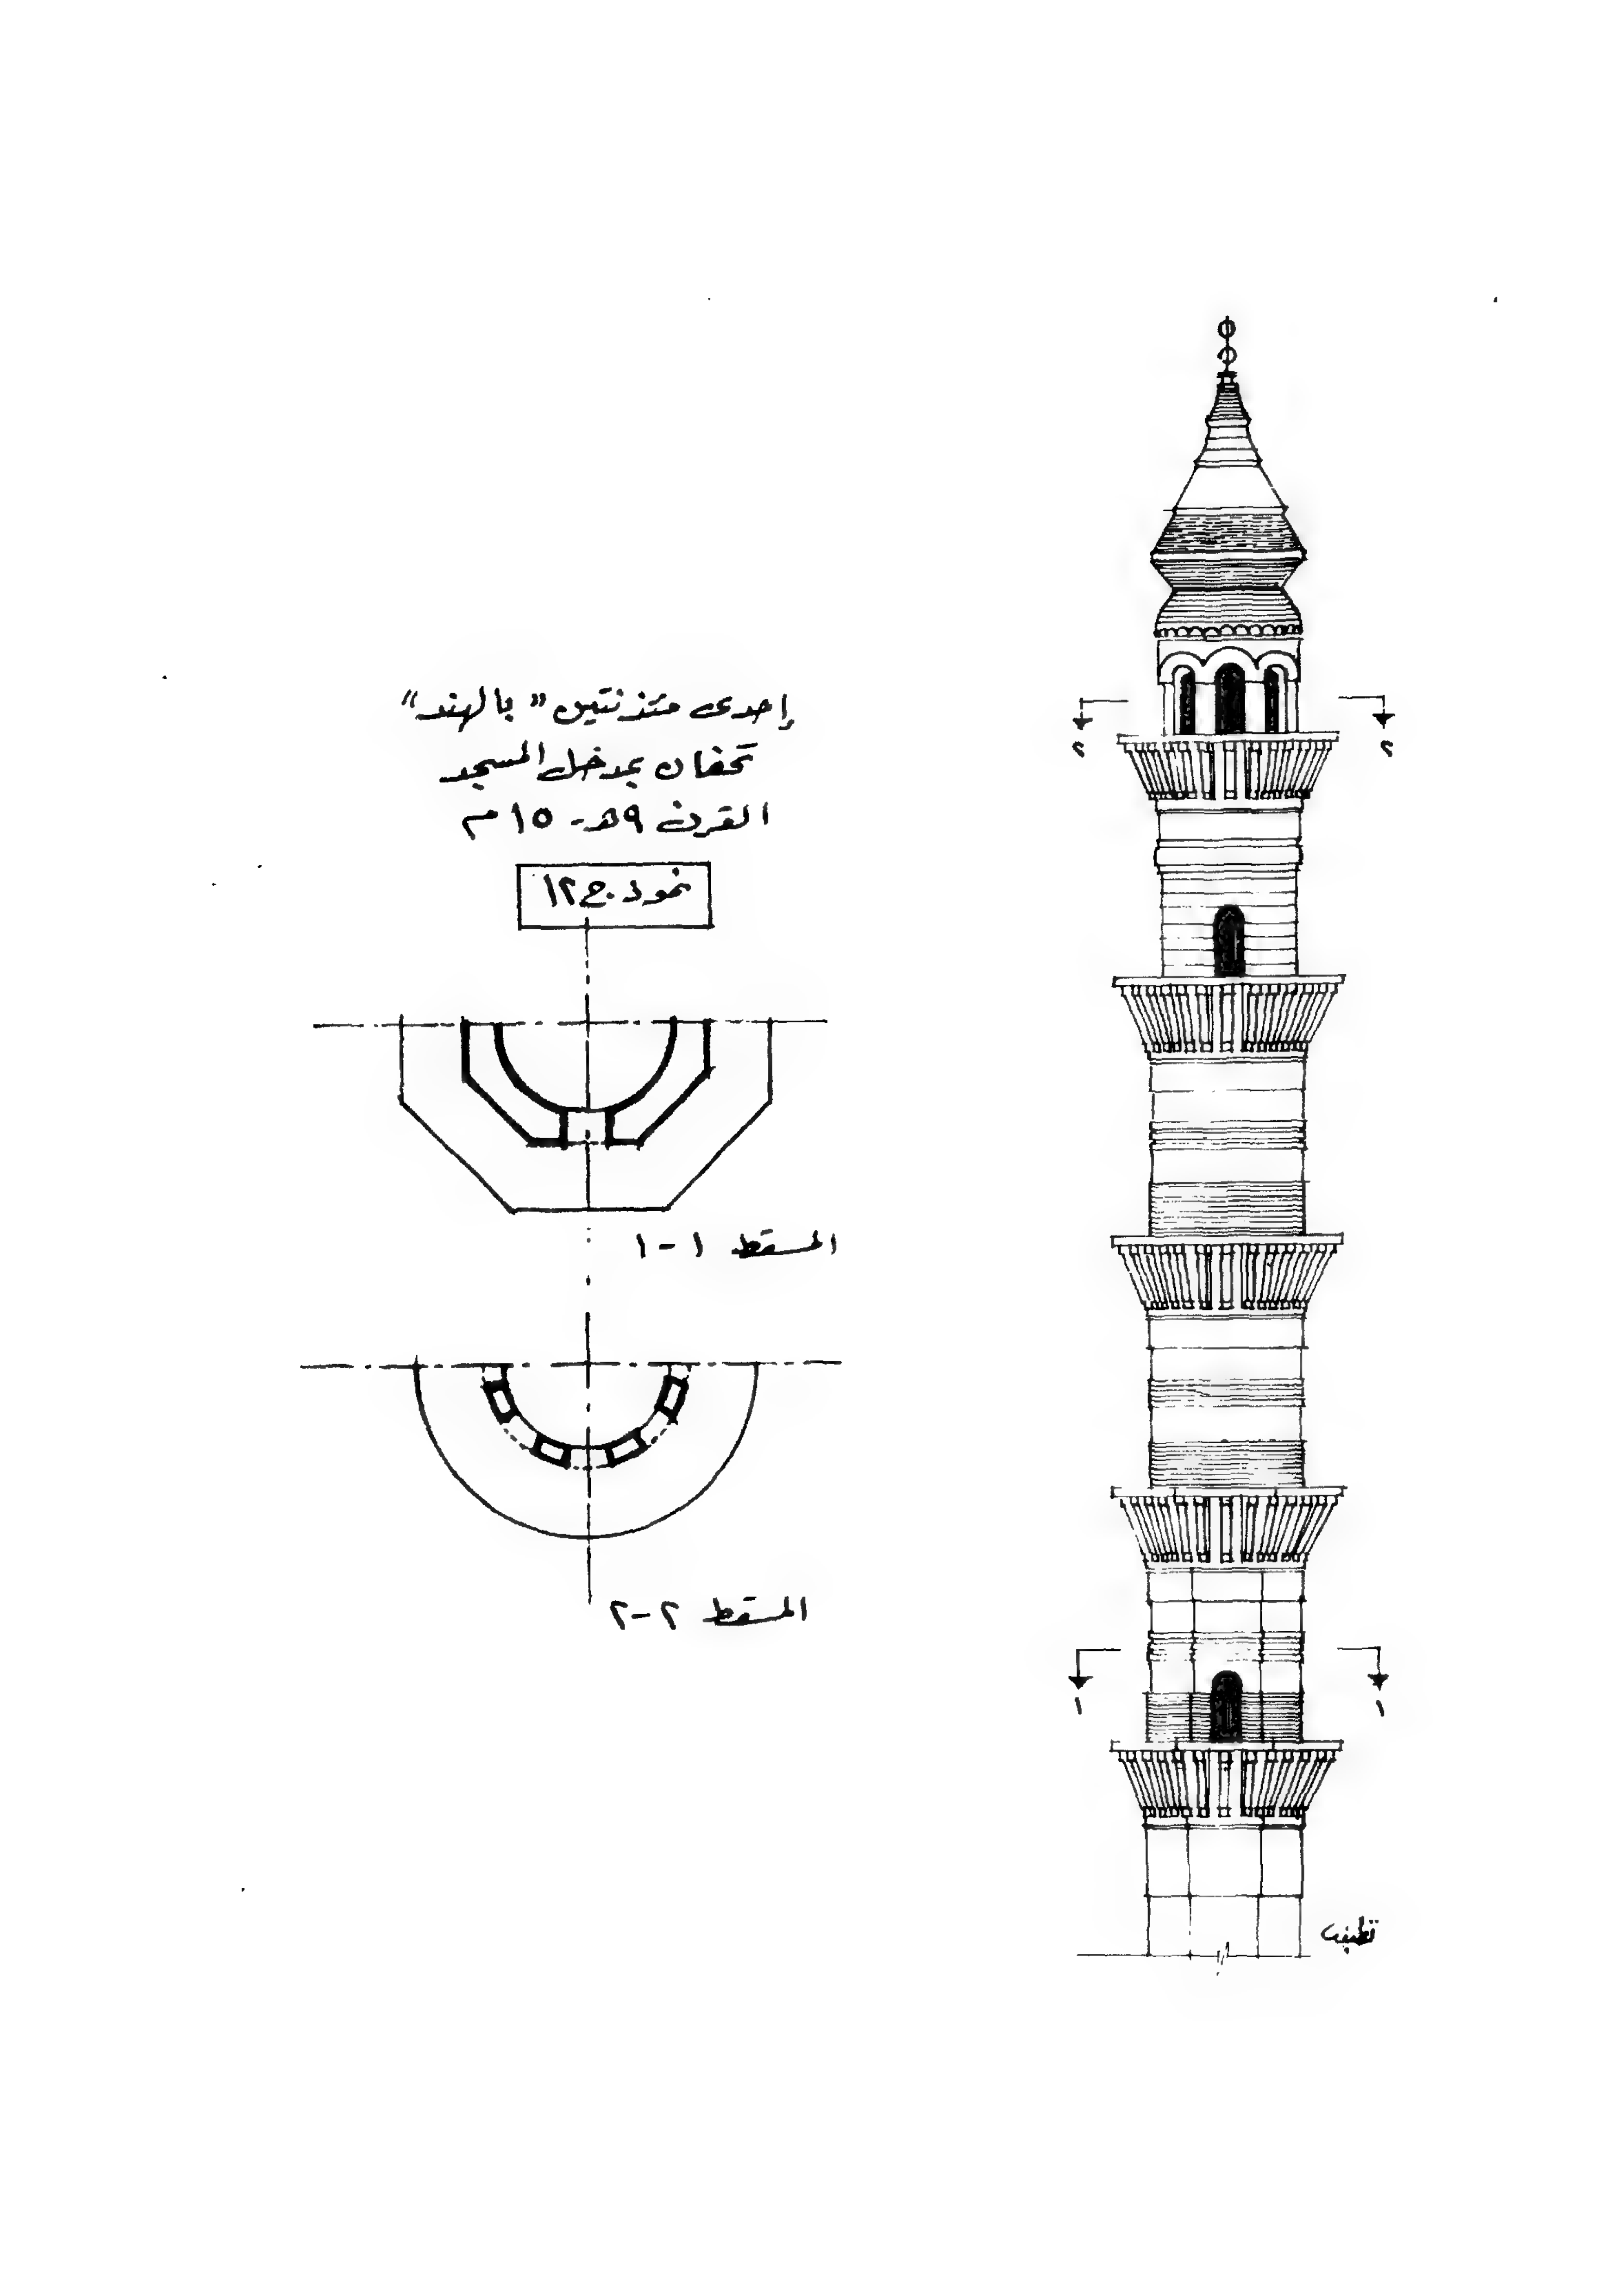 إحدى مئذنتين "بالهند"
تحفان بمدخل المسجد
القرن ٩هـ - ١٥م
نموذج ١٢
المسقط ١-١
المسقط ٢-٢
٢ ٢
١ ١